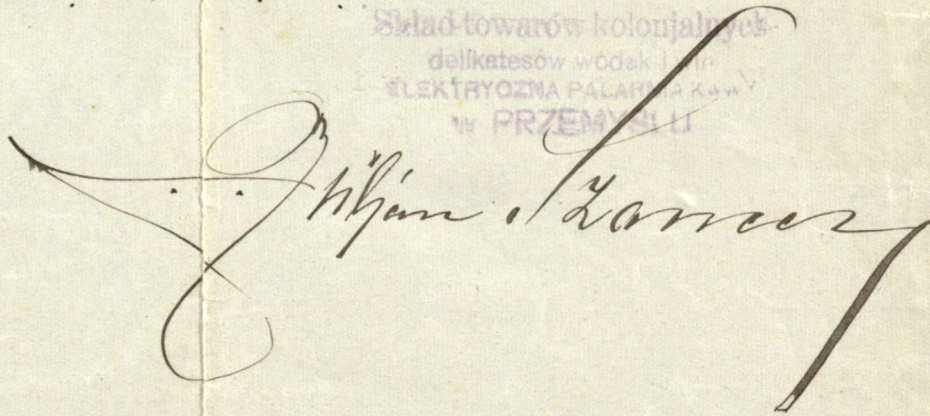 Skład towarów kolonjalnych
delikatesów wódek i win
ELEKTRYCZNA PALARNIA KAWY
w PRZEMYŚLU
Szancer